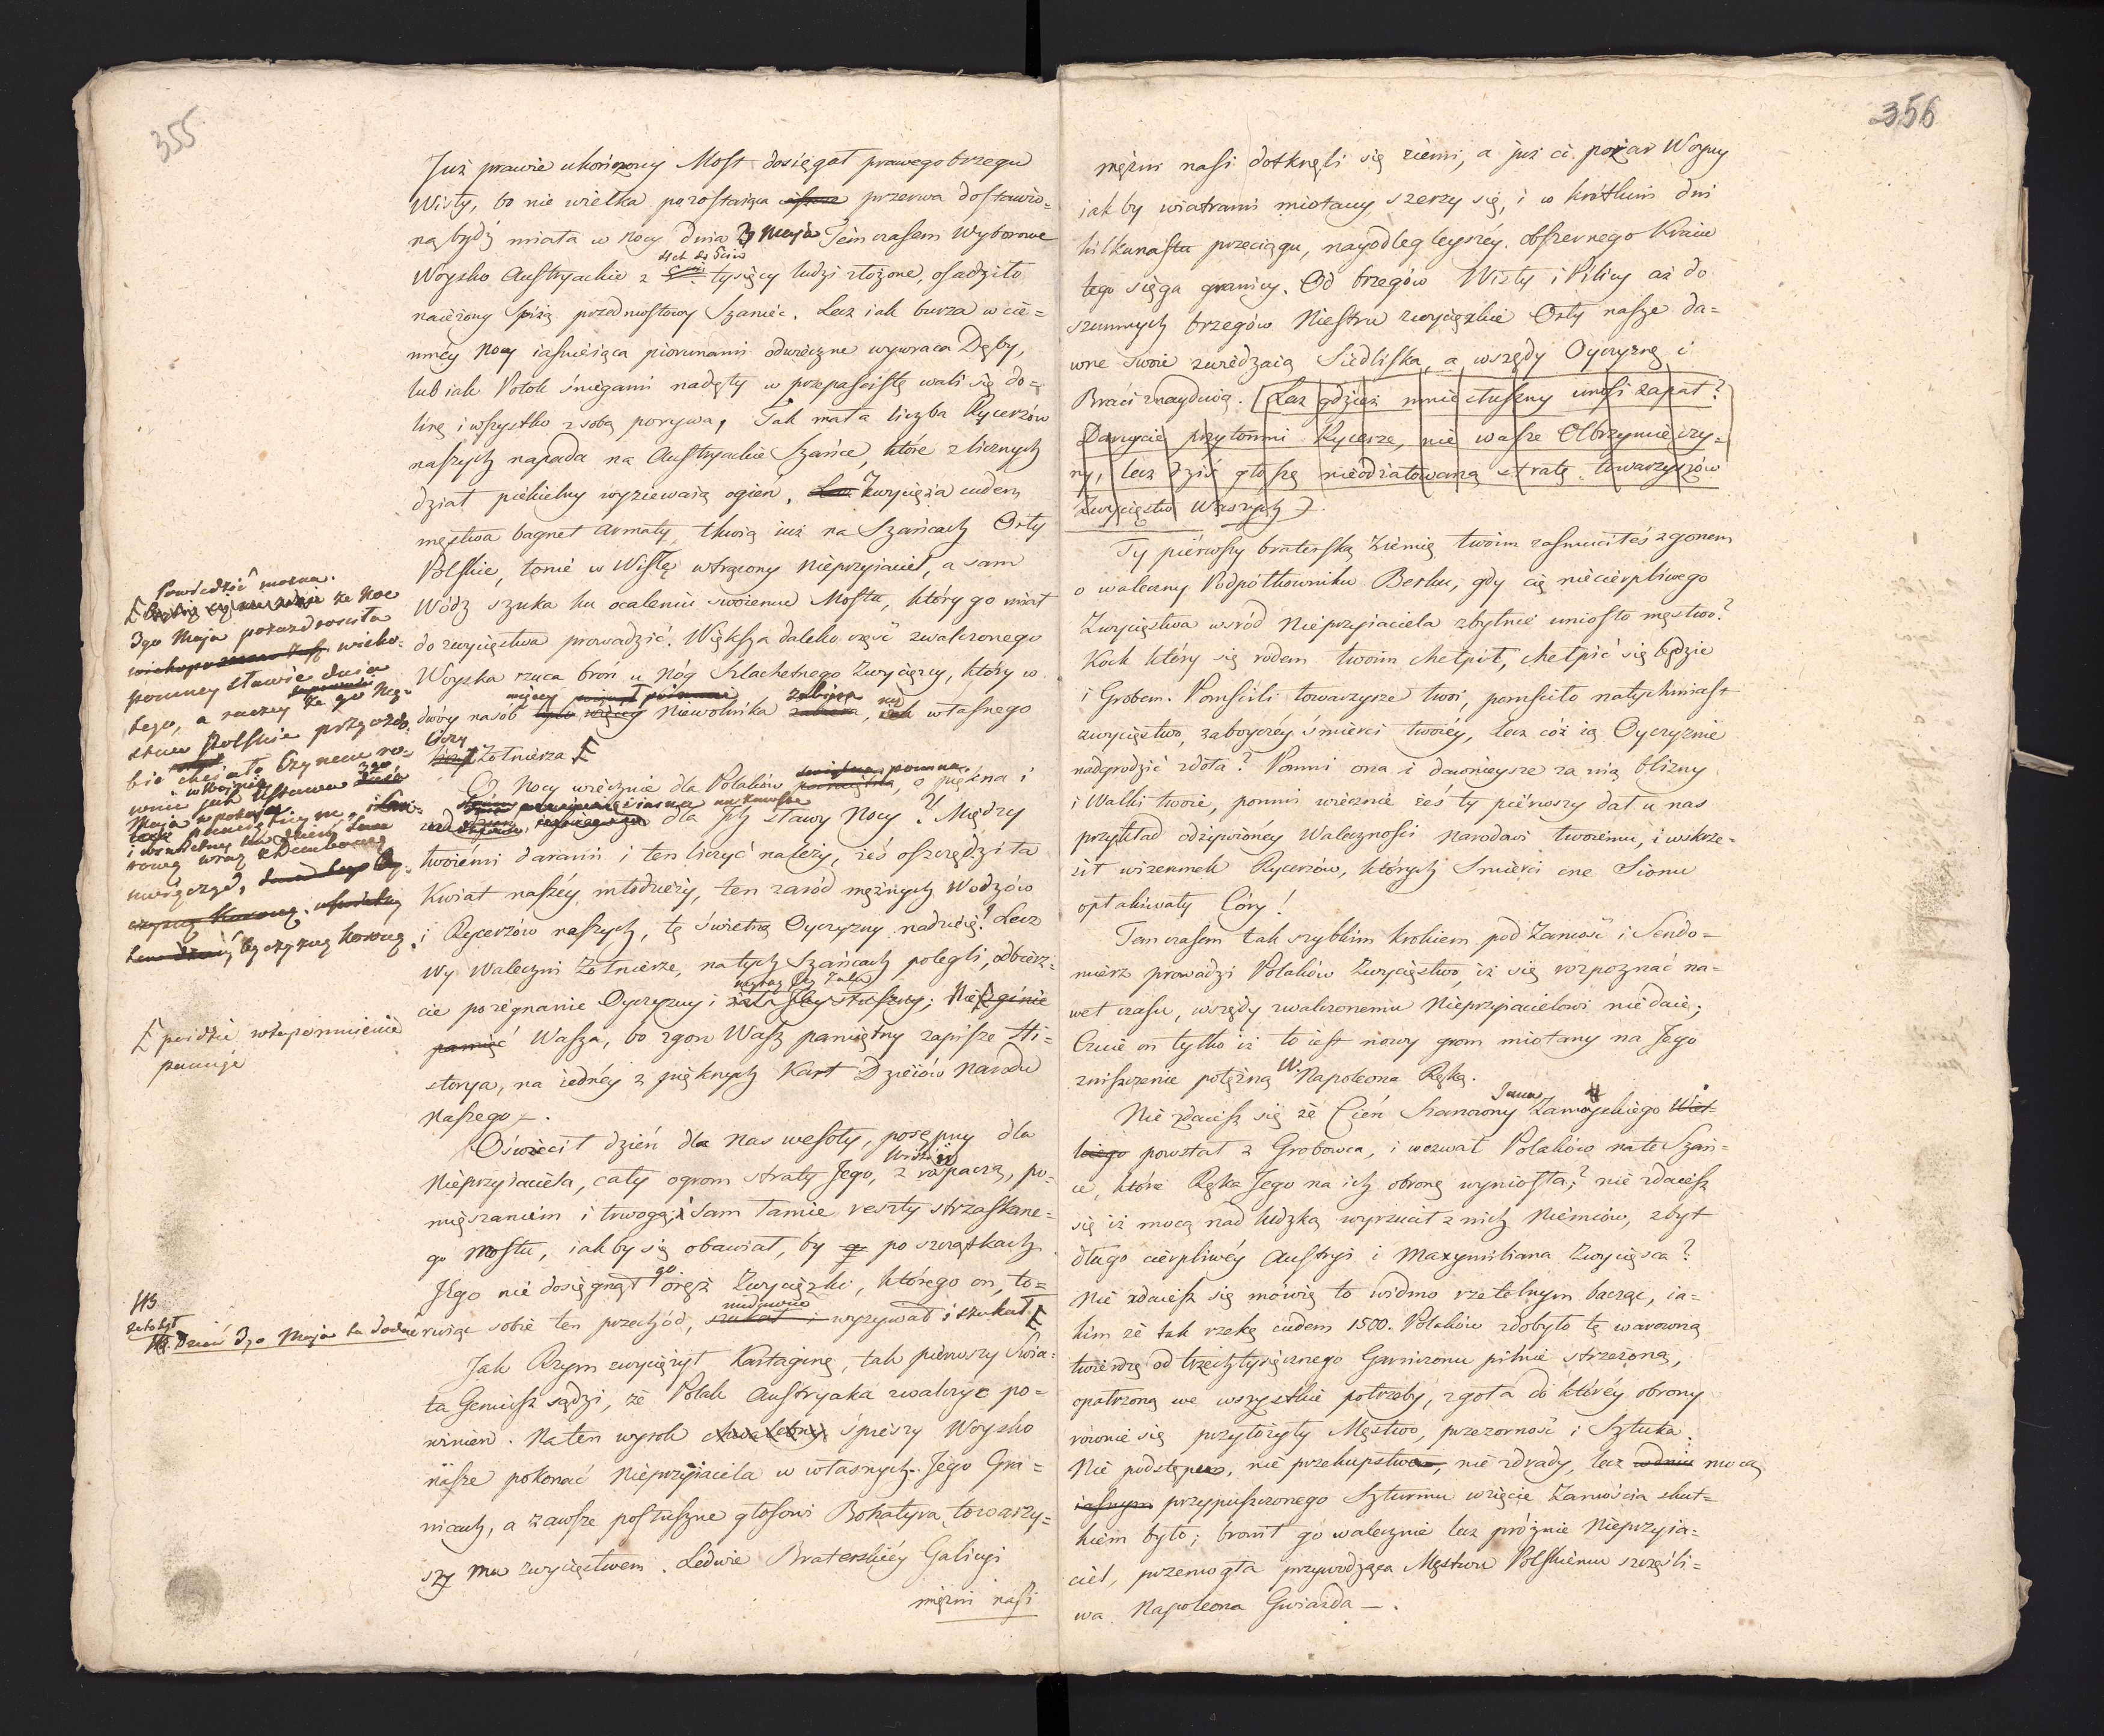 355
Już prawie ukończony Most dosięgał prawego brzegu
Wisły, bo nie wielka pozostaiąca przerwa dostawio=
ną bydź miała w Nocy dnia 3 Maja Tém czasem Wyborowe
Woysko Austryackie z tysięcy ludzi złożone, osadziło
naieżony Spiżą przedmostowy Szaniéc. Lecz iak burza w cié=
mnéy Nocy iaśnieiąca piorunami odwieczne wywraca Dęby,
lub iak Potok śniegami nadęty w przepaścistę wali się do=
linę i wszystko z sobą porywa, Tak mała liczba Rycerzów
naszych napada na Austryackie Szańce, które z licznych
dział piekielny wyziewaią ogień, Zwycięża cudem
męstwa bagnet Armaty, tkwią iuż na Szańcach Orły
Polskie, tonie w Wisłę wtrącony Nieprzyiaciel, a sam
Wódz szuka ku ocaleniu swoiemu Mostu, który go miał
do zwycięstwa prowadzić. Większa daleko część zwalczonego
Woyska rzuca broń u Nóg Szlachetnego Zwycięzcy, który w
dwóy nasób więcey Niewolnika zabiera, niż własnego
liczy Żołnierza
Powiedzieć można.
że Noc
3go Maja pozazdrościła
wieko-
pomney sławie dnia
tego, a raczey że go Męz-
stwo Polskie przyozdo-
bić chciało Czynem ró-
wnie jak Ustawa 3go
Maja
uwięczyć,
O Nocy wiecznie dla Polaków pomna, o piękna i
dla ich sławy Nocy! Między
twoiémi darami i ten liczyć należy, żeś oszczędziła
Kwiat naszéy młodzieży, ten zaród mężnych Wodzów
i Rycerzów naszych, tę świetną Oyczyzny nadzieię! Lecz
Wy Waleczni Żołnierze, na tych Szańcach polegli, odbierz=
cie pożegnanie Oyczyzny i żal Jéy słuszny; Nie zginie
pamięć Wasza, bo zgon Wasz pamiętny zapisze Hi=
storya, na iednéy z pięknych Kart Dzieiów Narodu
Naszego —.
póidzie wspomnienie
Oświecił dzień dla Nas wesoły, posępny dla
Nieprzyiaciela, cały ogrom straty Jego, z rospaczą, po=
mięszaniem i trwogą, i sam łamie reszty strzaskane=
go Mostu, iakby się obawiał, by po szczątkach
Jego nie dosięgnął go oręż Zwycięzki, którego on, to=
ruiąc sobie ten przechód, wyzywał i szukał
Dzień 3go Maja tu dodać
Jak Rzym zwyciężył Kartaginę, tak piérwszy Świa=
ta Geniusz sądzi, że Polak Austryaka zwalczyć po=
winien. Na ten wyrok chwalebny śpieszy Woysko
nasze pokonać Nieprzyiaciela w własnych Jego Gra=
nicach, a zawsze posłuszne głosowi Bohatyra, towarzy=
szy mu zwycięstwem. Ledwie Braterskiéy Galicyi
mężni nasi
356
mężni nasi dotknęli się ziemi, a już ci pożar Woyny
iakby wiatrami miotany szerzy się, i w krótkim dni
kilkunastu przeciągu, nayodlegleyszéy obszernego Kraiu
tego sięga granicy. Od brzegów Wisły i Pilicy aż do
szumnych brzegów Niestru zwycięzkie Orły nasze da=
wne swoie zwiedzaią Siedliska, a wszędy Oyczyznę i
Braci znayduią. Lecz gdzież mnie słuszny unosi zapał?
Darujcie przytomni Rycerze, nie wasze Olbrzymie czy=
ny, lecz dziś głoszę nieodżałowaną stratę towarzyszów
Zwycięstw Waszych.
Ty piérwszy braterską Ziémię twoim zasmuciłeś zgonem
o waleczny Podpółkowniku Berku, gdy cię niecierpliwego
Zwycięstwa wśród Nieprzyiaciela zbytnie uniosło męstwo?
Kock który się rodem twoim chełpił, chełpić się będzie
i Grobem. Pomścili towarzysze twoi, pomściło natychmiast
zwycięstwo, zaboyczéy śmierci twoiéy, Lecz cóż ią Oyczyźnie
nadgrodzić zdoła? Pomni ona i dawnieysze za nią blizny
i Walki twoie, pomni wiecznie żeś ty piérwszy dał u nas
przykład odżywioney Waleczności Narodowi twoiemu, i wskrze=
sił wizerunek Rycerzów, których Śmierci cne Sionu
opłakiwały Córy!
Tem czasem tak szybkim krokiem pod Zamość i Sendo=
mierz prowadzi Polaków Zwycięstwo, iż się rozpoznać na=
wet czasu, wszędy zwalczonemu Nieprzyiacielowi nie daie;
Czuie on tylko iż to iest nowy grom miotany na Jego
zniszczenie potężną W. Napoleona Ręką.
Nie zdaiesz się że Cień Szanowny Jana Zamoyskiego Wiel=
kiego powstał z Grobowca, i wezwał Polaków na te Szań=
ce, które Ręka Jego na ich obronę wyniosła? nie zdaiesz
się iż mocą nad ludzką wyrzucił z nich Niemców, zbyt
długo cierpliwéy Austryi i Maxymiliana Zwycięsca?
Nie zdaiesz się mówię to widmo rzetelnym bacząc, ia=
kim że tak rzekę cudem 1500. Polaków zdobyło tę warowną
twierdzę od trzechtysięcznego Garnizonu pilnie strzeżoną,
opatrzoną we wszystkie potrzeby, zgoła do któréy obrony
równie się przyłożyły Męstwo, przezorność i Sztuka.
Nie podstępem, nie przekupstwem, nie zdrady, lecz w dniu mocą
iasnym przypuszczonego Szturmu wzięcie Zamościa skut=
kiem było; bronił go walecznie lecz próżnie Nieprzyia=
ciel, przemogła przywodząca Męstwu Polskiému szczęśli=
wa Napoleona Gwiazda —.